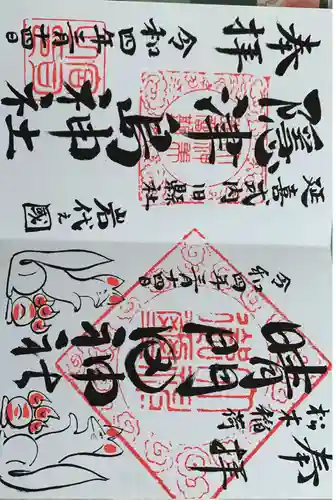 奉拝
令和四年三月十四日
隠津島神社
延喜式内旧縣社
岩代之國
令和四年三月十四日
晴門田神社
松木稲荷
奉拝